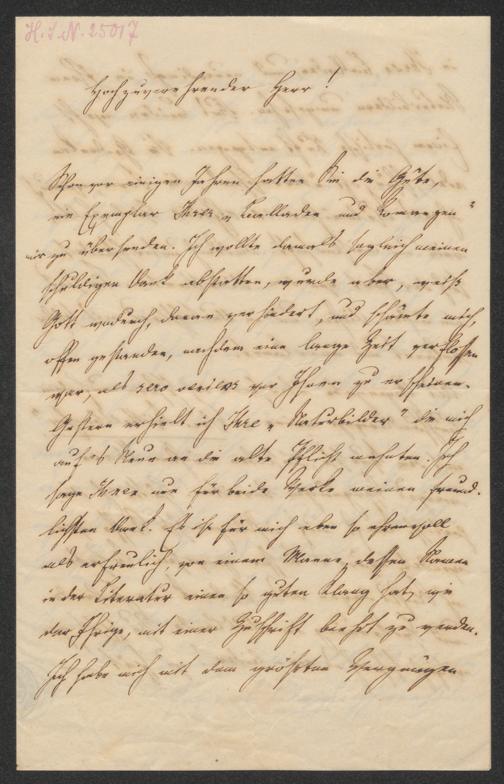 H. I. N. 25017
Hochzuverehrender Herr!
Schon vor einigen Jahren hatten Sie die Güte,
ein Exemplar Ihrer „Balladen und Romanzen"
mir zu übersenden. Ich wollte damals sogleich meinen
schuldigen Dank abstatten, wurde aber, weiß
Gott wodurch, daran verhindert, und scheute mich,
offen gestanden, nachdem eine lange Zeit verflossen
war, als sero veniens vor Ihnen zu erscheinen.
Gestern erhielt ich Ihre „Naturbilder" die mich
auf's Neue an die alte Pflicht mahnten. Ich
sage Ihnen nun für beide Werke meinen freund-
lichsten Dank. Es ist für mich eben so ehrenvoll
als erfreulich, von einem Manne, dessen Namen
in der Literatur einen so guten Klang hat, wie
der Ihrige, mit einer Zuschrift beehrt zu werden.
Ich habe mich mit dem größten Vergnügen